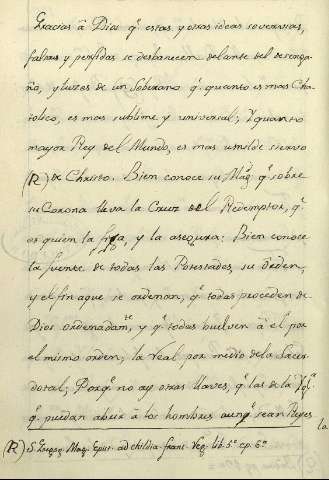 Gracias â Dios q.^e estas y otras ideas sovervias,
falsas y perfidas se desbanecen delante del desenga-
ño, y luzes de un Soberano q.^e quanto es mas Cha-
tolico, es mas sublime y universal; y quanto
mayor Rey del Mundo, es mas umilde siervo
(R) de Christo. Bien conoce su Mag.^d q.^e sobre
su Corona lleva la Cruz del Redemptor, q.^e
es quien la fixa, y la asegura: Bien conoce
la fuente de todas las Potestades, su Orden,
y el fin aque se ordenan, q.^e todas proceden de
Dios ordenadam.^te, y q.^e todas buelven â el por
el mismo orden, la Real por medio de la Sacer-
dotal; Porq.^e no ay otras llaves, q.^e las de la Igl.^a
q.^e puedan abrir â los hombres aunq.^e sean Reyes
la
(R) S. Gregor. Mag. Epist. ad childia franc. Reg. lib. 5.^o ep. 6.^a